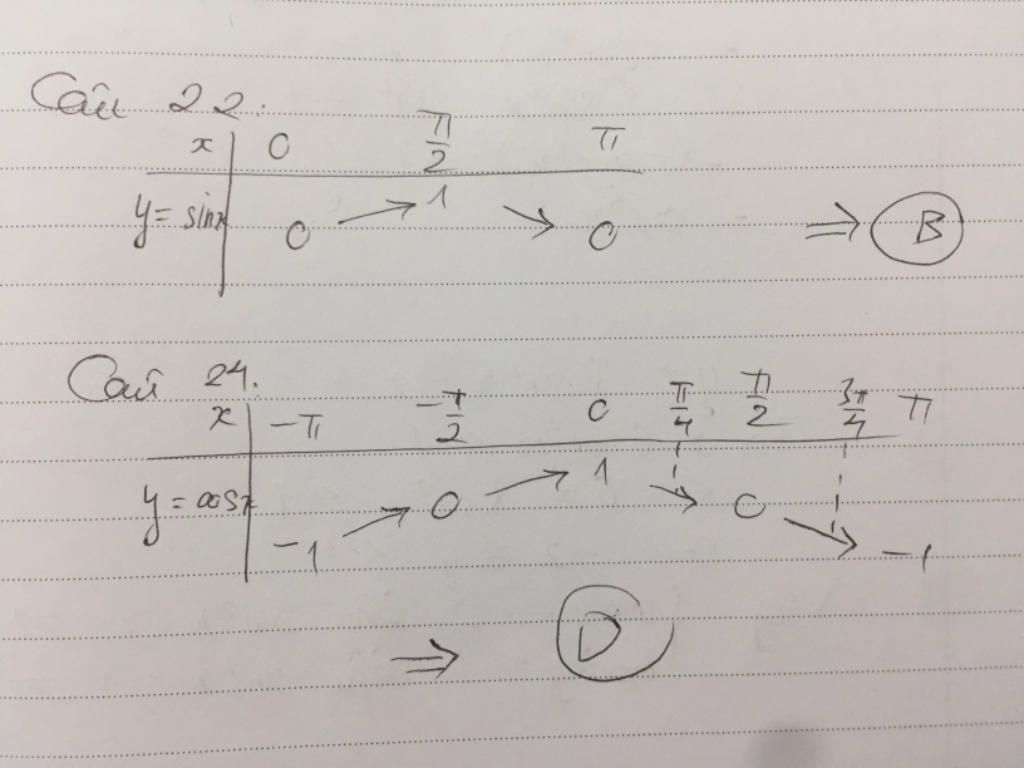 Câu 22:
x 0 π/2 π
y = sinx 0 ↗ 1 ↘ 0 ⇒ B
Câu 24.
x -π -π/2 0 π/4 π/2 3π/4 π
y = cosx -1 ↗ 0 ↗ 1 ↘ 0 ↘ -1
⇒ D